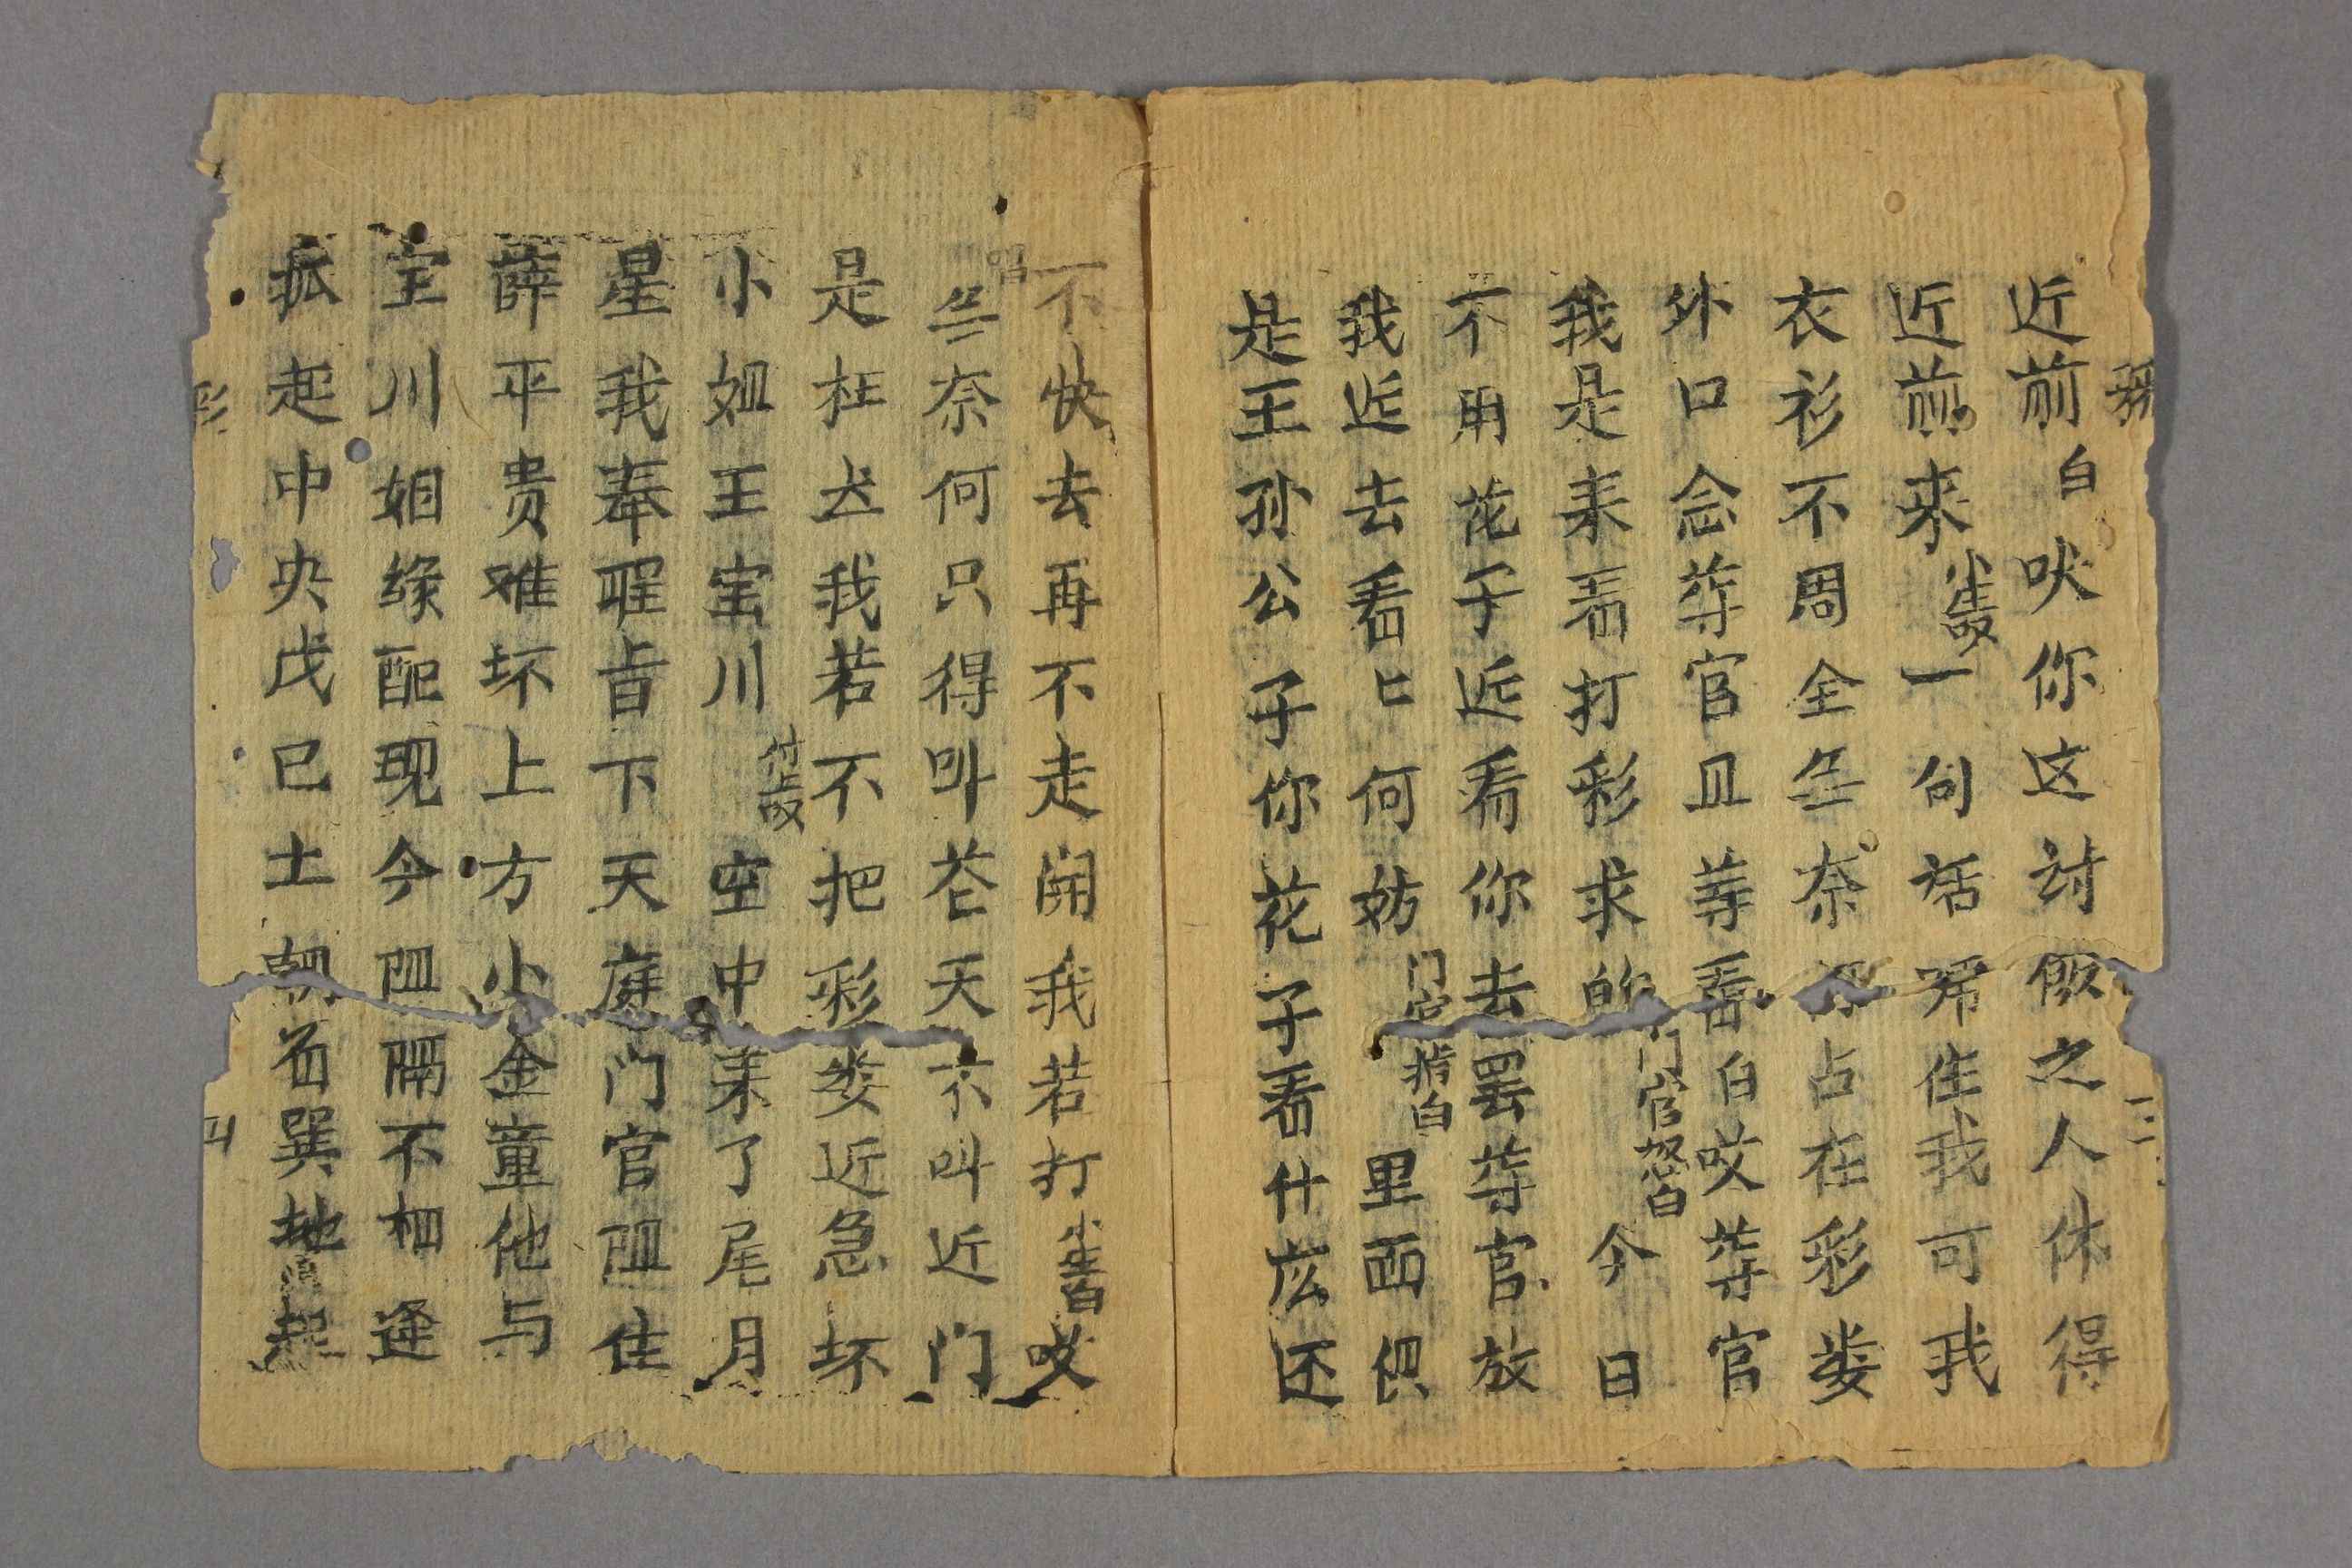 近前白吠你这讨飯之人休得
近前来小生叹一句话啼住我可我
衣衫不周全乍奈占在彩娄
外口念荨官且荨看白哎荨官
我是来看打彩求的门官怒白今日
不用花子近看你去罢荨官放
我近去看匕何妨门官背白里面俱
是王孙公子你花子看什庅还
三
不快去再不走闹我若打小生白哎
唱
乍奈何只得叫苍天不叫近门
是枉去我若不把彩娄近急坏
小姐王宝川付上叹空中来了尾月
星我奉聖旨下天庭门官阻住
薛平贵难坏上方小金童他与
宝川姻缘配现今阻隔不相逢
抓起中央戊己土朝着巽地起
彩
四